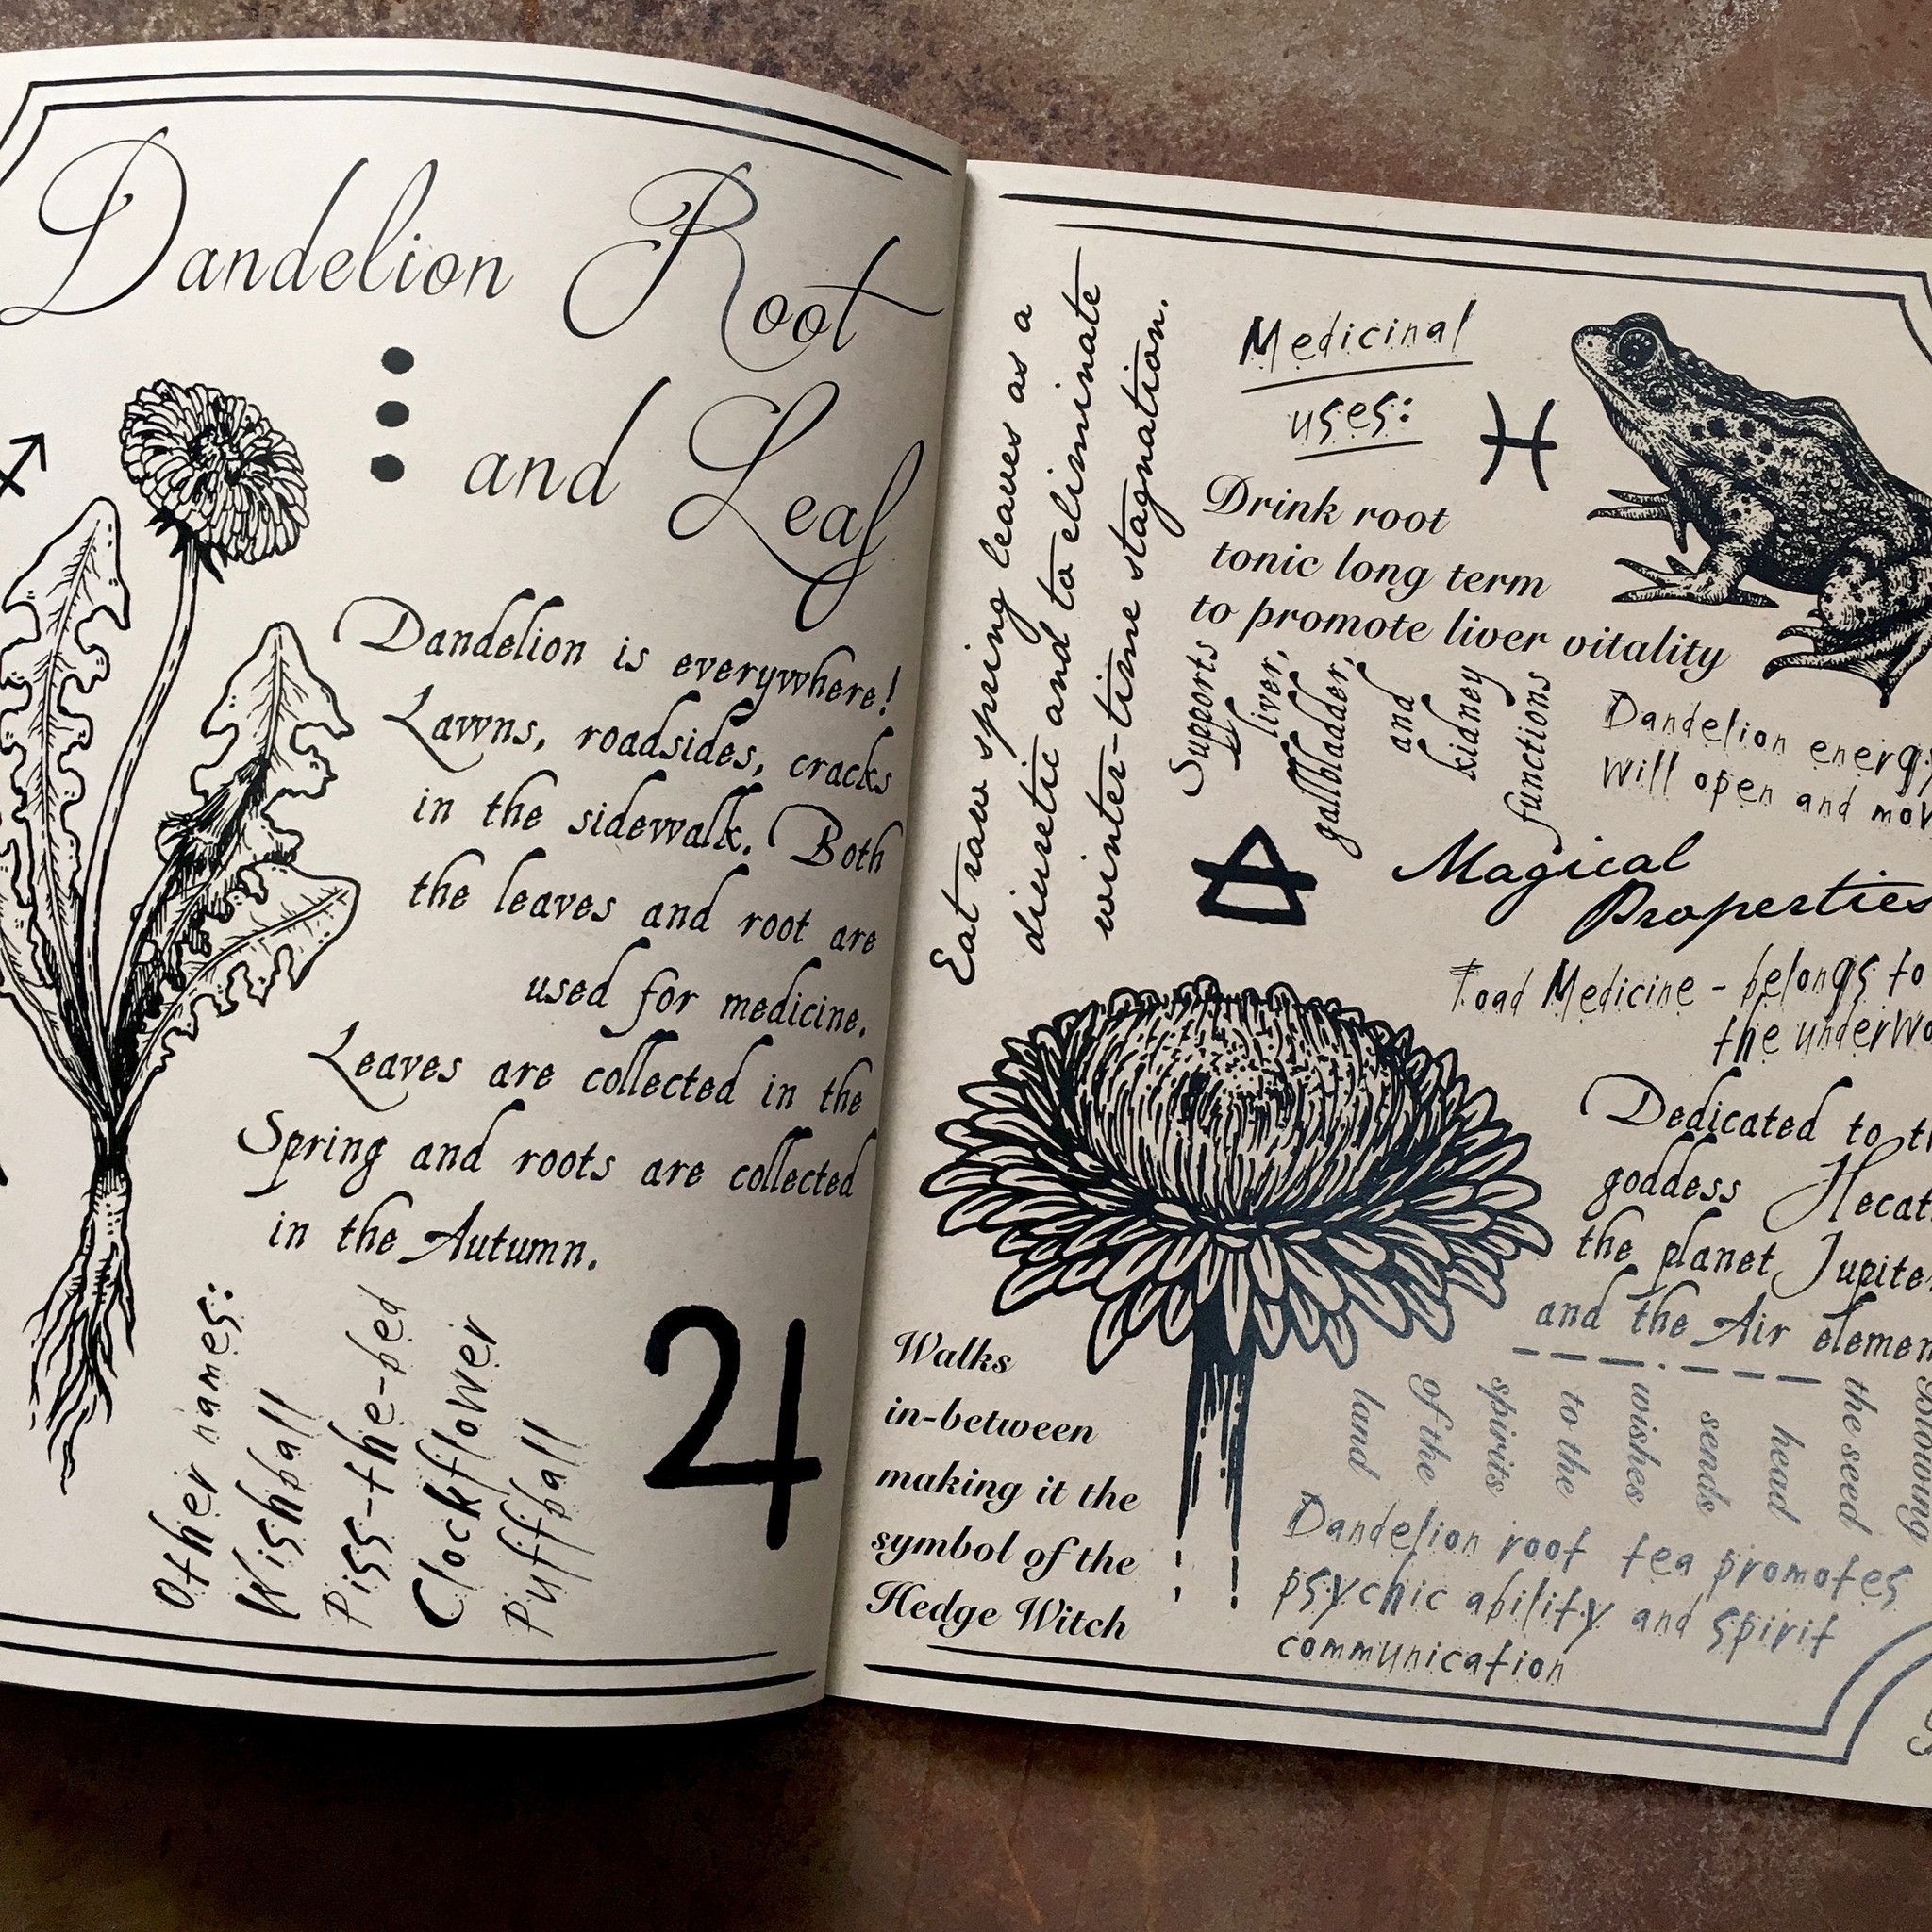 Dandelion Root
and Leaf
Dandelion is everywhere!
Lawns, roadsides, cracks
in the sidewalk. Both
the leaves and root are
used for medicine.
Leaves are collected in the
Spring and roots are collected
in the Autumn.
Other names:
Wishball
Piss-the-bed
Clockflower
Puffball
Eat raw spring leaves as a
diuretic and to eliminate
winter-time stagnation.
Medicinal
uses:
Drink root
tonic long term
to promote liver vitality
Supports
liver,
gallbladder,
and
kidney
functions
Dandelion energy
will open and
Magical
Properties
Toad Medicine - belongs to
the
Dedicated to
goddess
the planet
and the Air
Blowing
the seed
head
sends
wishes
to the
spirits
of the
land
Walks
in-between
making it the
symbol of the
Hedge Witch
Dandelion root tea promotes
psychic ability and spirit
communication